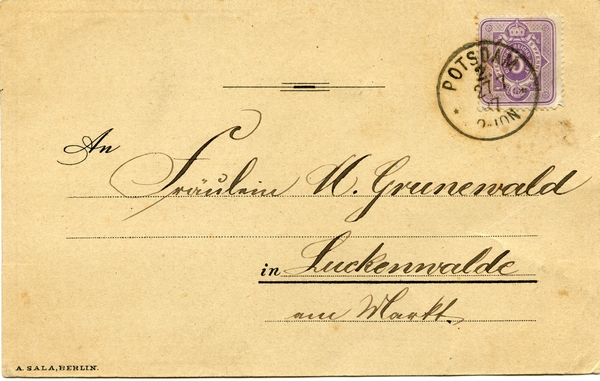 POTSDAM
An
Fräulein M. Grunewald
in Luckenwalde
am Markt.
A. SALA, BERLIN.